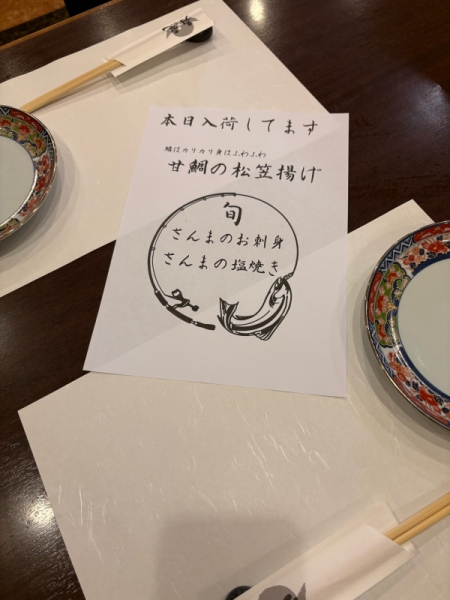 本日入荷してます
鱗はカリカリ身はふわふわ
甘鯛の松笠揚げ
旬
さんまのお刺身
さんまの塩焼き